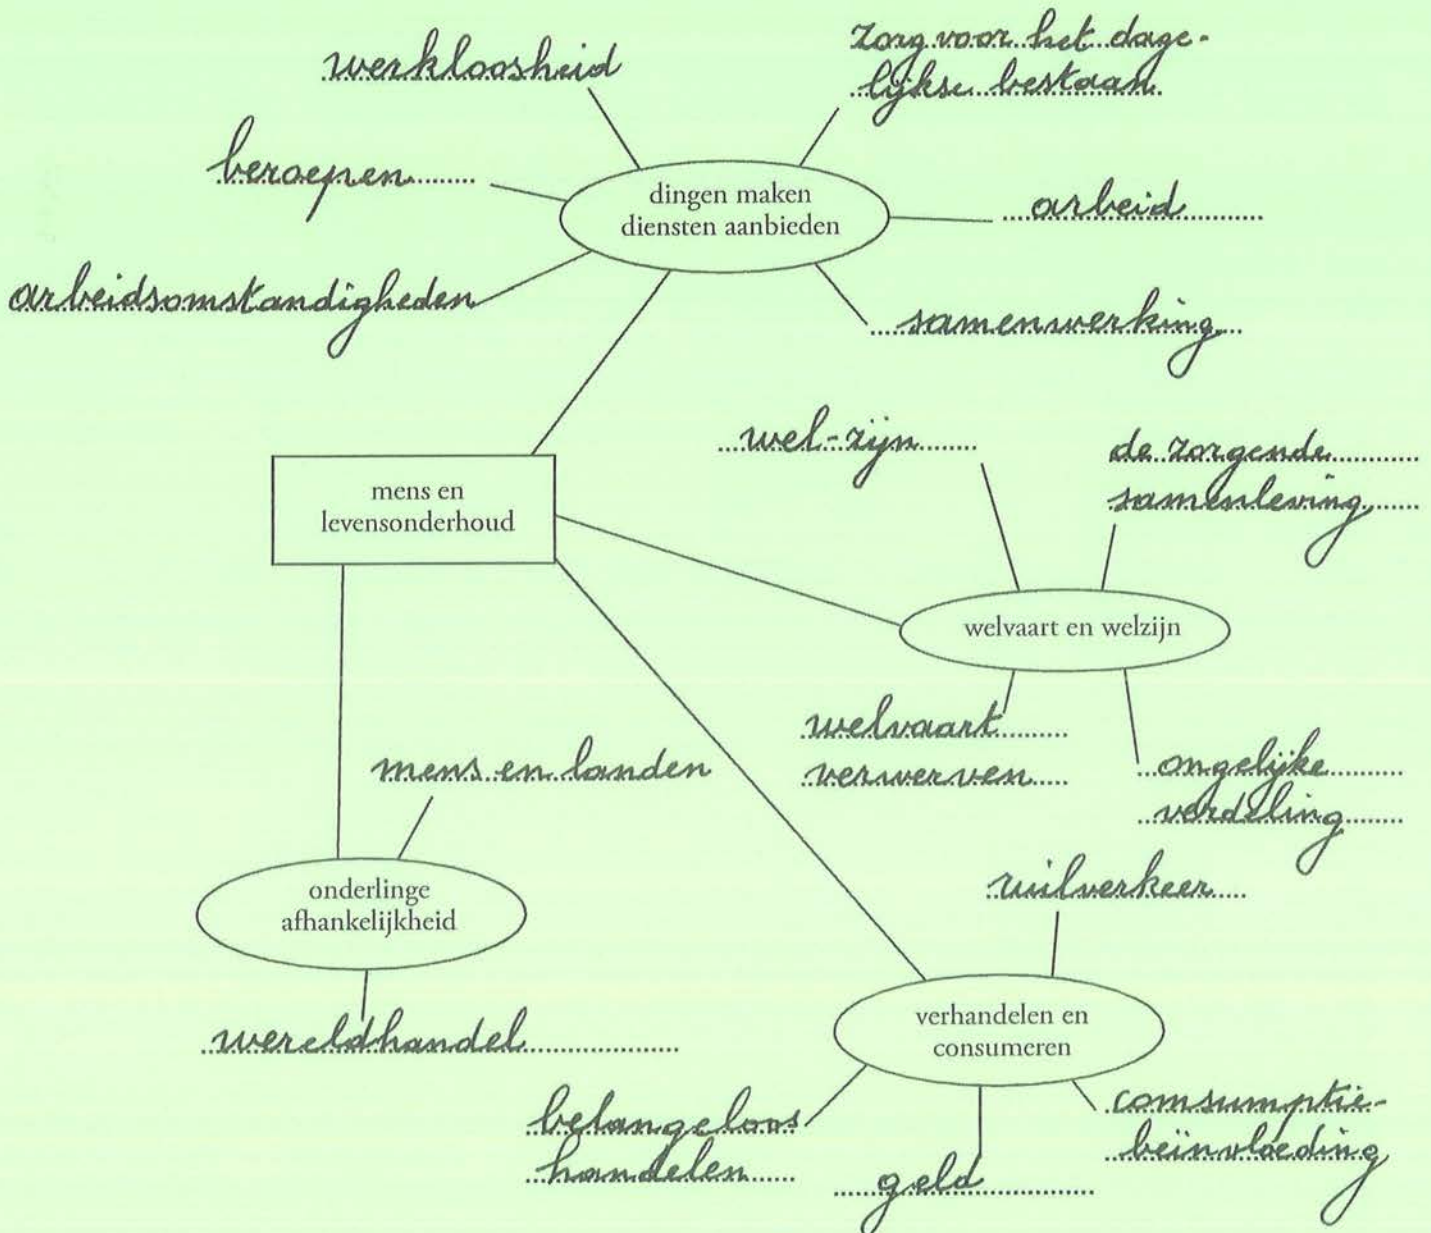 werkloosheid
zorg voor het dage-
lijkse bestaan
beroepen
dingen maken
diensten aanbieden
arbeid
arbeidsomstandigheden
samenwerking
wel-zijn
de zorgende
samenleving
mens en
levensonderhoud
welvaart en welzijn
welvaart
verwerven
mens en landen
ongelijke
verdeling
ruilverkeer
onderlinge
afhankelijkheid
wereldhandel
verhandelen en
consumeren
belangeloos
handelen
geld
comsumptie-
beïnvloeding